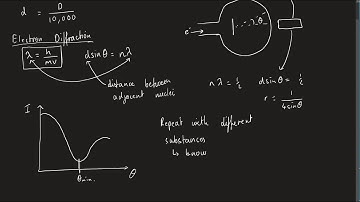 d = D / 10,000
Electron Diffraction
λ = h / mv
d sinθ = nλ
distance between
adjacent nuclei
e⁻
θ
nλ = 1/2
d sinθ = 1/2
r = 1 / 4 sinθ
I
θmin.
θ
Repeat with different
substances
↳ know